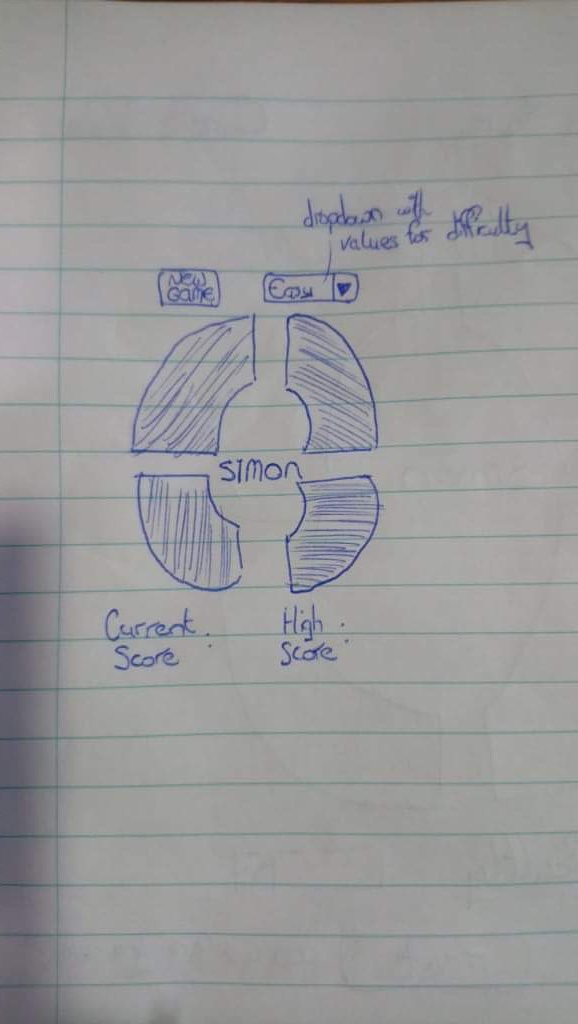 dropdown with
values for difficulty
New
Game
Easy
SIMON
Current :
Score
High :
Score